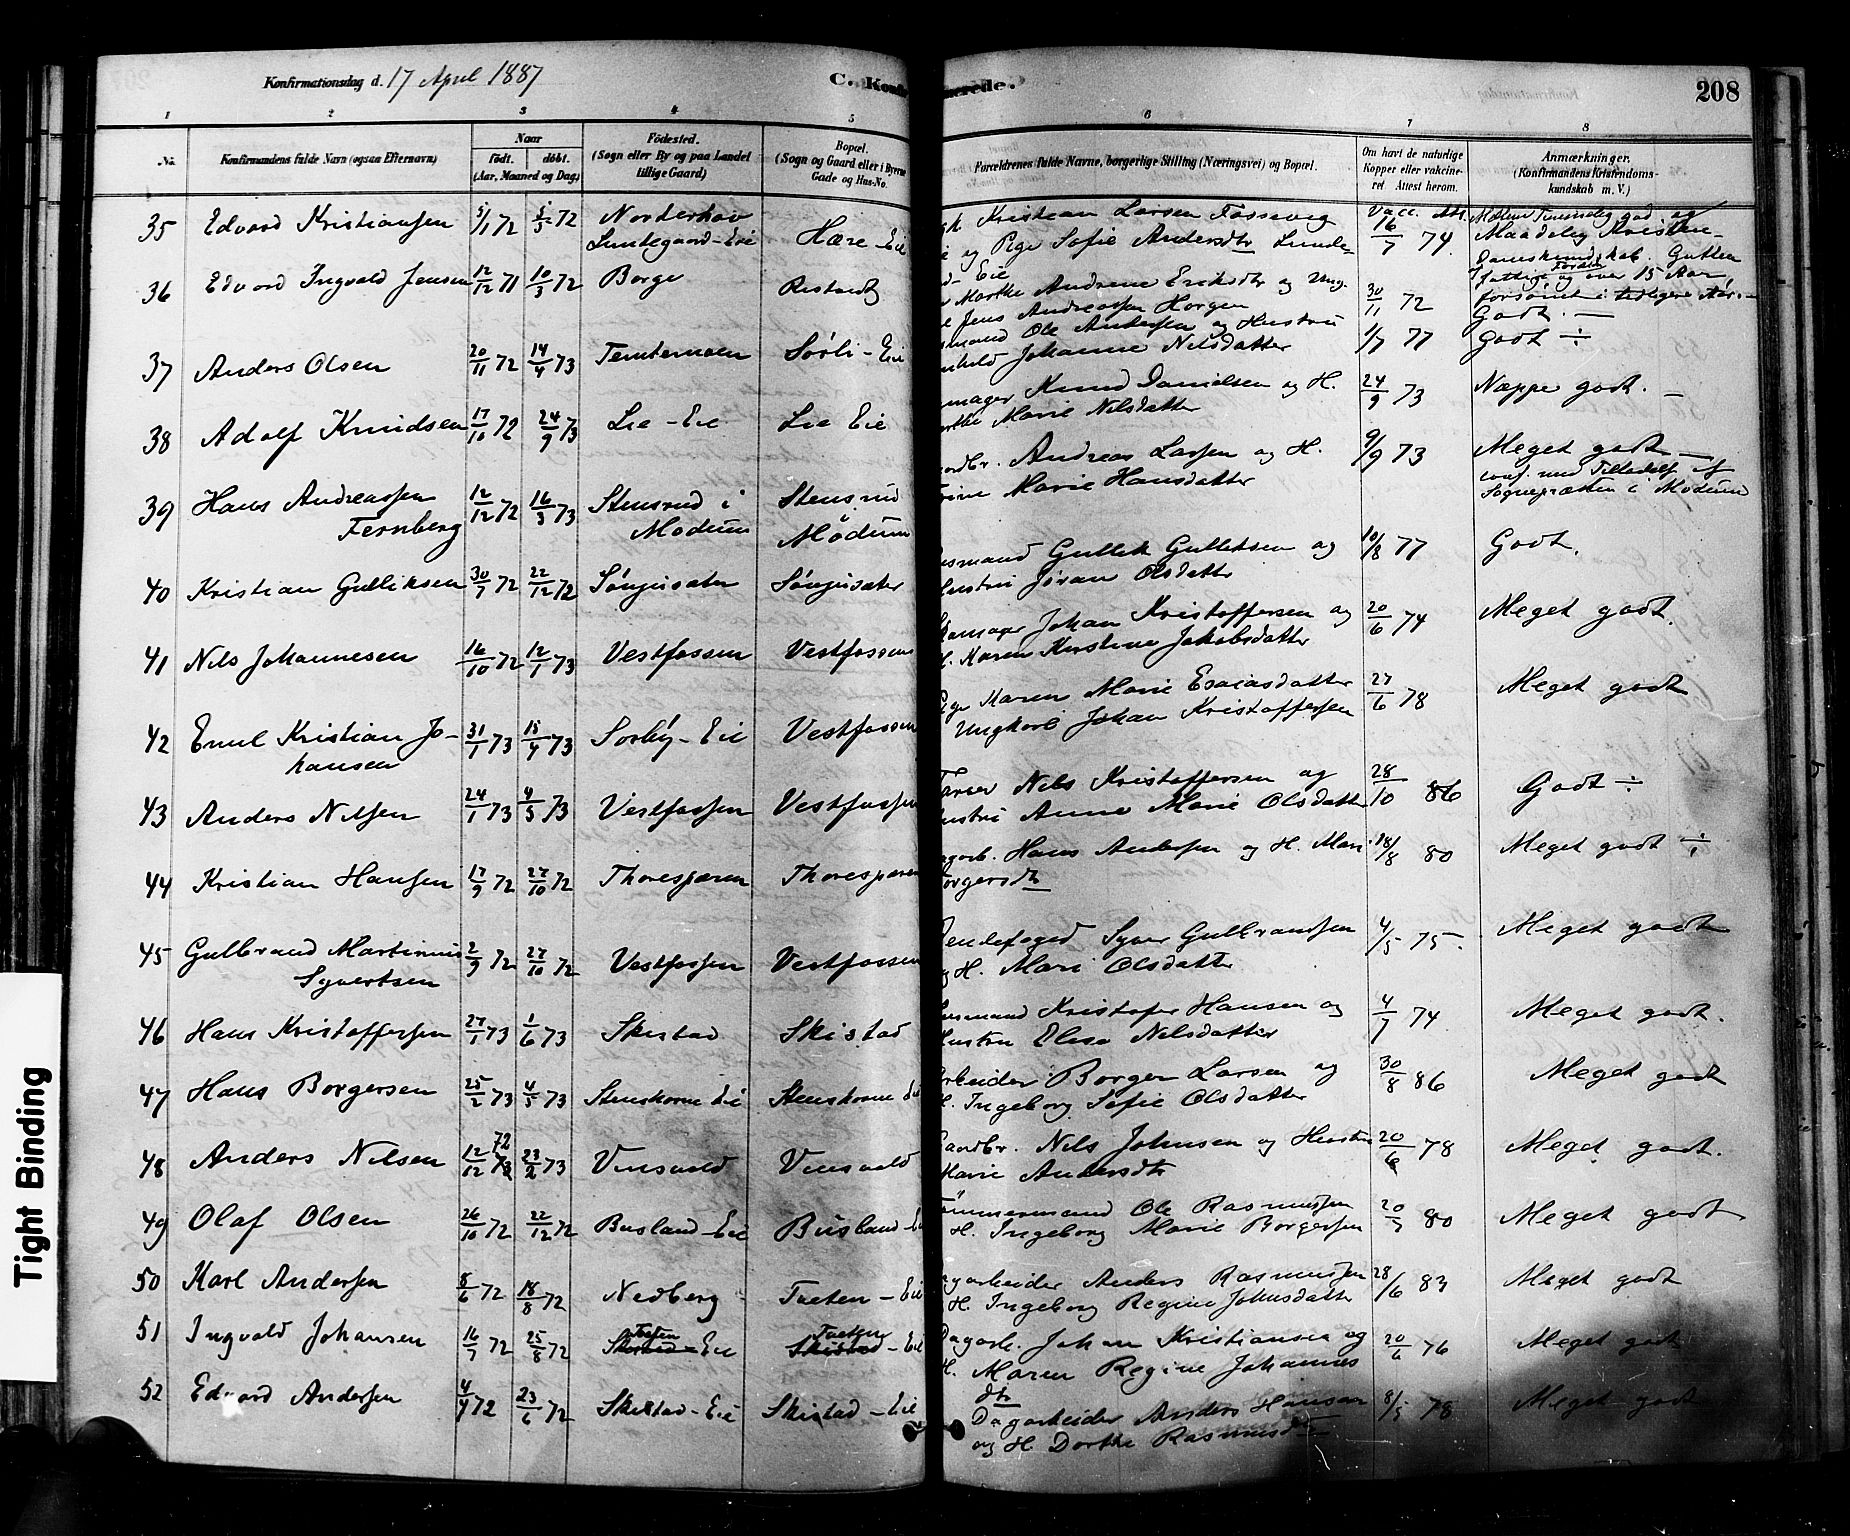 Konfirmationsdag d. 17 April 1887
C. Konfir
merede.
208
1 2 3 4 5 6 7 8
No. Konfirmandens fulde Navn (ogsaa Efternavn) Naar født. døbt. (Aar, Maaned og Dag) Fødested. (Sogn eller By og paa Landet tillige Gaard) Bopæl. (Sogn og Gaard eller i Byerne Gade og Hus-No.
Forældrenes fulde Navne, borgerlige Stilling (Næringsvei) og Bopæl. Om havt de naturlige Kopper eller vakcineret. Attest herom. Anmærkninger. (Konfirmandens Kristendomskundskab m. V.)
35 Edvard Kristiansen 5/1 72 5/5 72 Norderhov Lundegaard-Eie Hære-Eie
Kristian Larsen Fosseveg
og Pige Sofie Andersdtr Lunde-
Eie
Vacc. Att. 16/7 74
36 Edvard Ingvald Jensen 12/12 71 10/3 72 Borge
Marthe Andrine Eriksdtr og Ung.
Jens Andreassen Horgen
30/11 72 Godt. —
37 Anders Olsen 20/11 72 14/4 73 Temtemoen Sørli-Eie
smand Ole Andersen og Hustru
Johanne Nilsdatter
1/7 77 Godt ÷
38 Adolf Knudsen 17/10 72 24/9 73 Lie-Eie Lie Eie
mager Knud Danielsen og H.
rthe Marie Nilsdatter
24/9 73 Næppe godt. —
39 Hans Andreassen Fernberg 12/12 72 16/3 73 Stensrud i Modum Stensrud Modum
ardbr. Andreas Larsen og H.
rine Marie Hansdatter
9/9 73 Meget godt —
conf. med Tilladelse af
Sognepræsten i Modum
40 Kristian Gulliksen 30/7 72 22/12 72 Sönjusæter Sönjusæter
usmand Gullik Gulliksen og
Hustru Jøran Olsdatter
10/8 77 Godt.
41 Nils Johannesen 16/10 72 12/1 73 Vestfossen Vestfossen
Skomager Johan Kristoffersen og
H. Maren Kirstine Jakobsdatter
20/6 74 Meget godt.
42 Emil Kristian Johansen 31/1 73 15/4 73 Sorby-Eie Vestfossen
Pige Maren Marie Esaiasdatter
Ungkarl Johan Kristoffersen
27/6 78 Meget godt
43 Anders Nilsen 24/1 73 4/5 73 Vestfossen Vestfossen
Farver Nils Kristoffersen og
ustru Anne Marie Olsdatter
28/10 86 Godt ÷
44 Kristian Hansen 17/9 72 27/10 72 Thorespæren Thorespæren
agarb. Hans Andersen og H. Mari
Borgersdt
18/8 80 Meget godt ÷
45 Gulbrand Martinius Syvertsen 2/9 72 27/10 72 Vestfossen Vestfossen
Lendefoged Syver Gulbrandsen
og H. Mari Olsdatter
4/5 75. Meget godt
46 Hans Kristoffersen 27/1 73 1/6 73 Skistad Skistad
usmand Kristofer Hansen og
Hustru Elise Nilsdatter
4/7 74 Meget godt.
47 Hans Borgersen 25/2 73 4/5 73 Stenskorne Eie Stenskorne Eie
Arbeider Borger Larsen og
H. Ingeborg Sofie Olsdatter
30/8 86 Meget godt
48 Anders Nilsen 12/12 72 23/2 73 Vinsvold Vinsvold
Gaardbr. Nils Johnsen og Hustru
Marie Andersdtr
20/6 78 Meget godt.
49 Olaf Olsen 26/10 72 22/12 72 Busland-Eie Busland-Eie
Tømmermand Ole Rasmussen
H. Ingeborg Marie Borgersen
20/7 80 Meget godt
50 Karl Andersen 8/6 72 18/8 72 Nedberg Tveten-Eie
agarbeider Anders Rasmussen
H. Ingeborg Regine Johnsdatter
28/6 83 Meget godt
51 Ingvald Johansen 16/7 72 25/8 72 Tveten Skistad-Eie Tveten Skistad-Eie
Dagarb. Johan Kristiansen og
H. Maren Regine Johannes
dtr
20/6 76 Meget godt
52 Edvard Andersen 4/4 72 23/6 72 Skistad-Eie Skistad-Eie
Dagarbeider Anders Hansen
og H. Dorthe Rasmusdtr
8/5 78 Meget godt
Tight Binding